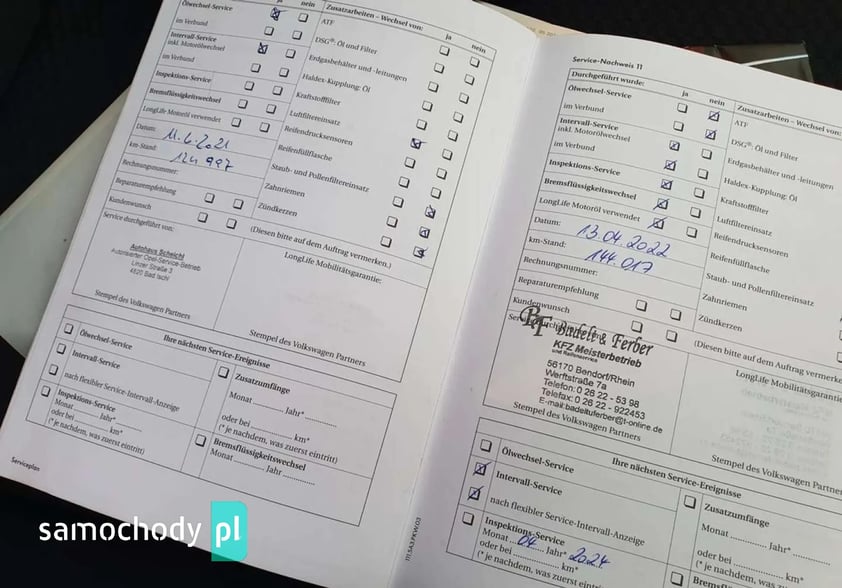 ja nein
Ölwechsel-Service
im Verbund
Intervall-Service
inkl. Motorölwechsel
im Verbund
Inspektions-Service
Bremsflüssigkeitswechsel
LongLife Motoröl verwendet
Datum: 11.6.2021
km-Stand: 124 997
Rechnungsnummer:
Reparaturempfehlung
Kundenwunsch
Service durchgeführt von:
Autohaus Scheichl
Autorisierter Opel-Service-Betrieb
Linzer Straße 3
4820 Bad Ischl
Stempel des Volkswagen Partners
Zusatzarbeiten – Wechsel von:
ja nein
ATF
DSG®: Öl und Filter
Erdgasbehälter und -leitungen
Haldex-Kupplung: Öl
Kraftstofffilter
Luftfiltereinsatz
Reifendrucksensoren
Reifenfüllflasche
Staub- und Pollenfiltereinsatz
Zahnriemen
Zündkerzen
(Diesen bitte auf dem Auftrag vermerken.)
LongLife Mobilitätsgarantie:
Stempel des Volkswagen Partners
Ihre nächsten Service-Ereignisse
Ölwechsel-Service
Intervall-Service
nach flexibler Service-Intervall-Anzeige
Inspektions-Service
Monat ........ Jahr* ........
oder bei ............ km*
(* je nachdem, was zuerst eintritt)
Zusatzumfänge
Monat ............ Jahr* ............
oder bei ............ km*
(* je nachdem, was zuerst eintritt)
Bremsflüssigkeitswechsel
Monat ........ Jahr ............
Serviceplan
Service-Nachweis 11
Durchgeführt wurde:
ja nein
Ölwechsel-Service
im Verbund
Intervall-Service
inkl. Motorölwechsel
im Verbund
Inspektions-Service
Bremsflüssigkeitswechsel
LongLife Motoröl verwendet
Datum: 13.04.2022
km-Stand: 144.017
Rechnungsnummer:
Reparaturempfehlung
Kundenwunsch
BF Badelt & Ferber
KFZ Meisterbetrieb
und Reifenservice
56170 Bendorf/Rhein
Werftstraße 7a
Telefon: 0 26 22 - 53 98
Telefax: 0 26 22 - 922453
E-mail:badeltuferber@t-online.de
Stempel des Volkswagen Partners
Zusatzarbeiten – Wechsel von:
ATF
DSG®: Öl und Filter
Erdgasbehälter und -leitungen
Haldex-Kupplung: Öl
Kraftstofffilter
Luftfiltereinsatz
Reifendrucksensoren
Reifenfüllflasche
Staub- und Pollenfiltereinsatz
Zahnriemen
Zündkerzen
(Diesen bitte auf dem Auftrag vermerke
LongLife Mobilitätsgarantie:
Stempel des Volkswagen Partner
Ihre nächsten Service-Ereignisse
Ölwechsel-Service
Intervall-Service
nach flexibler Service-Intervall-Anzeige
Inspektions-Service
Monat 04 Jahr* 2024
oder bei ............ km*
(* je nachdem, was zuerst eintritt)
Zusatzumfänge
Monat ............ Jahr* ........
oder bei ............ km*
(* je nachdem, was zuerst
Bremsflüss
samochody pl